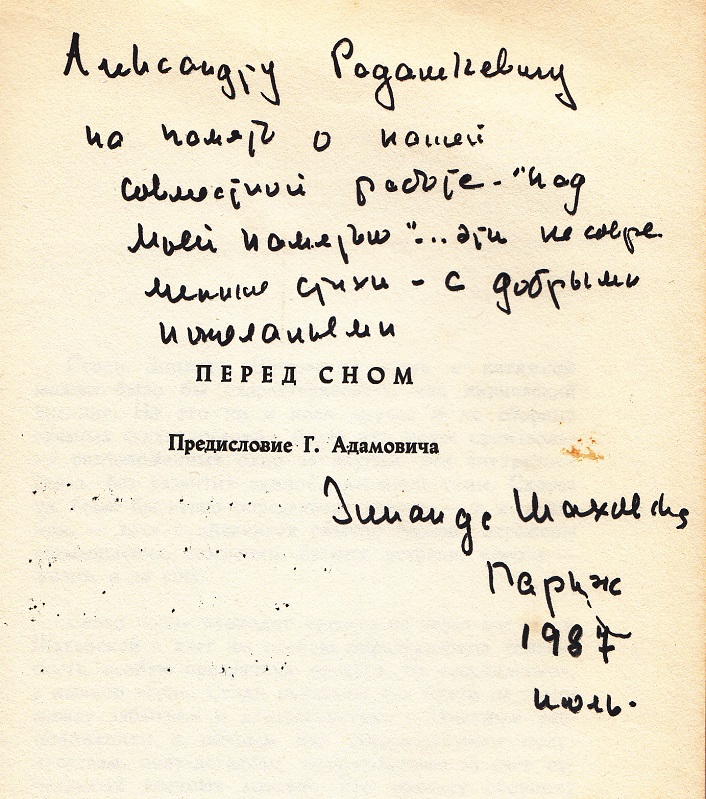 Александру Радашкевичу
на память о нашей
совместной работе - "над
моей памятью"... эти несовре
менные стихи - с добрыми
пожеланьями
ПЕРЕД СНОМ
Предисловие Г. Адамовича
Зинаида Шаховская
Париж
1987
июль.